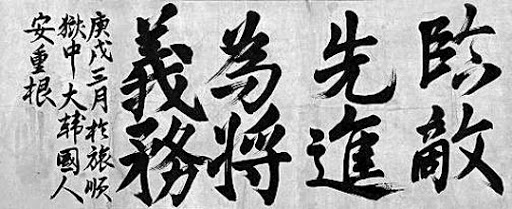 臨敵
先進
為將
義務
庚戌三月於旅順
獄中 大韓國人
安重根